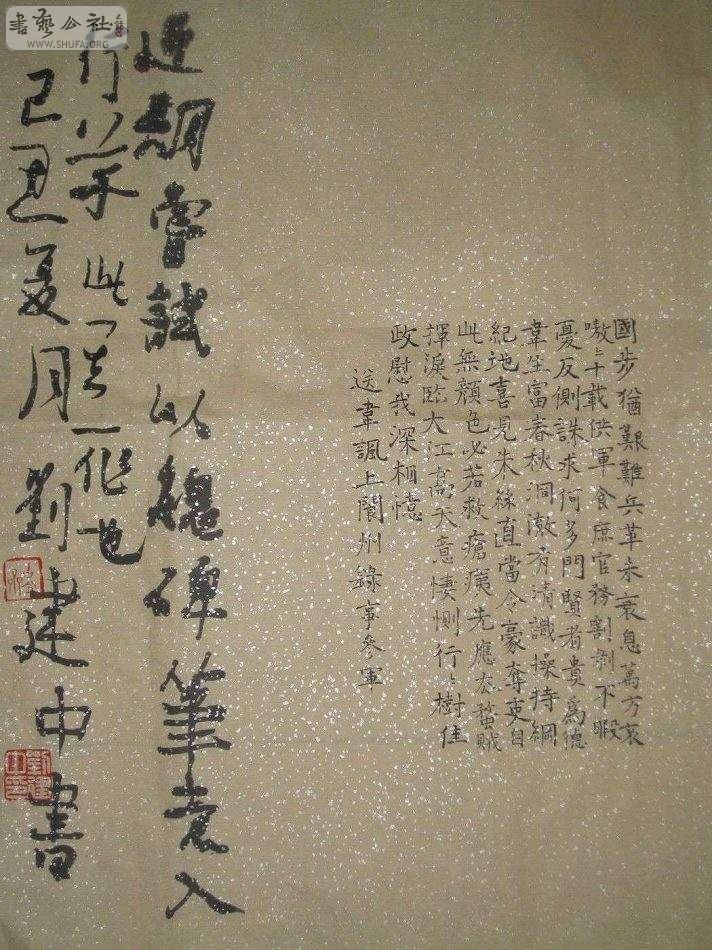 國步猶艱難兵革未衰息萬方哀
嗷〻十載供軍食庶官務割剝不暇
憂反側誅求何多門賢者貴為德
韋生富春秋洞澈有清識操持綱
紀地喜見朱絲直當令豪奪吏自
此無顏色必若救瘡痍先應去蝥賊
揮淚臨大江高天意悽惻行〻樹佳
政慰我深相憶
送韋諷上閬州錄事參軍
近期嘗試以魏碑筆意入
行草此其一作也
己丑夏月劉建中書
劉建中印
書藝公社
WWW.SHUFA.ORG